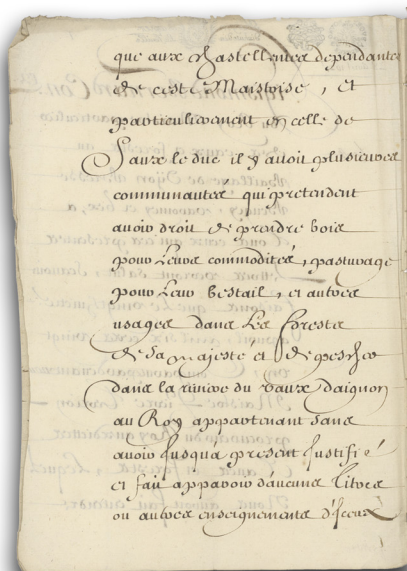 que aux chastellenies dependantes
de ceste Maistrise, et
particulierement en celle de
Saux le duc il y auoit plusieures
communautés qui pretendent
auoir droit de prendre bois
pour Leurs commodités, pasturage
pour Leur bestail, et autres
usages dans Les forests
de Sa Majeste et de pescher
dans la riuiere du Vaux daignon
au Roy appartenant Sans
auoir Jusqu'a present Justifié
et fait apparoir d'aucuns tiltres
ou autres enseignements d'Iceux